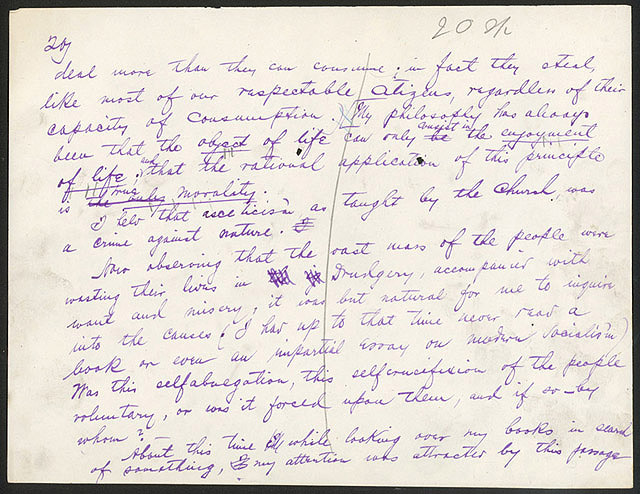 20 1/2
20)
deal more than they can consume; in fact they steal,
like most of our respectable citizens, regardless of their
capacity of consumption. My philosophy has always
been that the object of life can only be consist in the enjoyment
of life, and that the rational application of this principle
is the only true morality.
I held that asceticism as taught by the Church, was
a crime against nature.
Now observing that the vast mass of the people were
wasting their lives in drudgery, accompanied with
want and misery, it was but natural for me to inquire
into the causes. (I had up to that time never read a
book or even an impartial essay on modern Socialism)
Was this selfabnegation, this selfcrucifixion of the people
voluntary, or was it forced upon them, and if so – by
whom?
About this time while looking over my books in search
of something, my attention was attracted by this passage